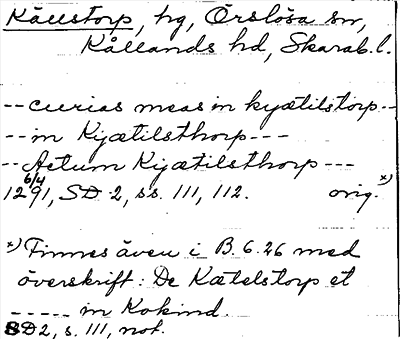 Källstorp, hg, Örslösa sn,
Kållands hd, Skarab.l.
-- curias meas in kyætilstorp --
-- in Kjætilsthorp ---
-- Actum Kijætilsthorp ---
12 6/4 91, SD 2, ss. 111, 112. orig. x)
x) Finnes även i B. 6. 26 med
överskrift: De Kætelstorp et
----- in Kokind.
SD 2, s. 111, not.